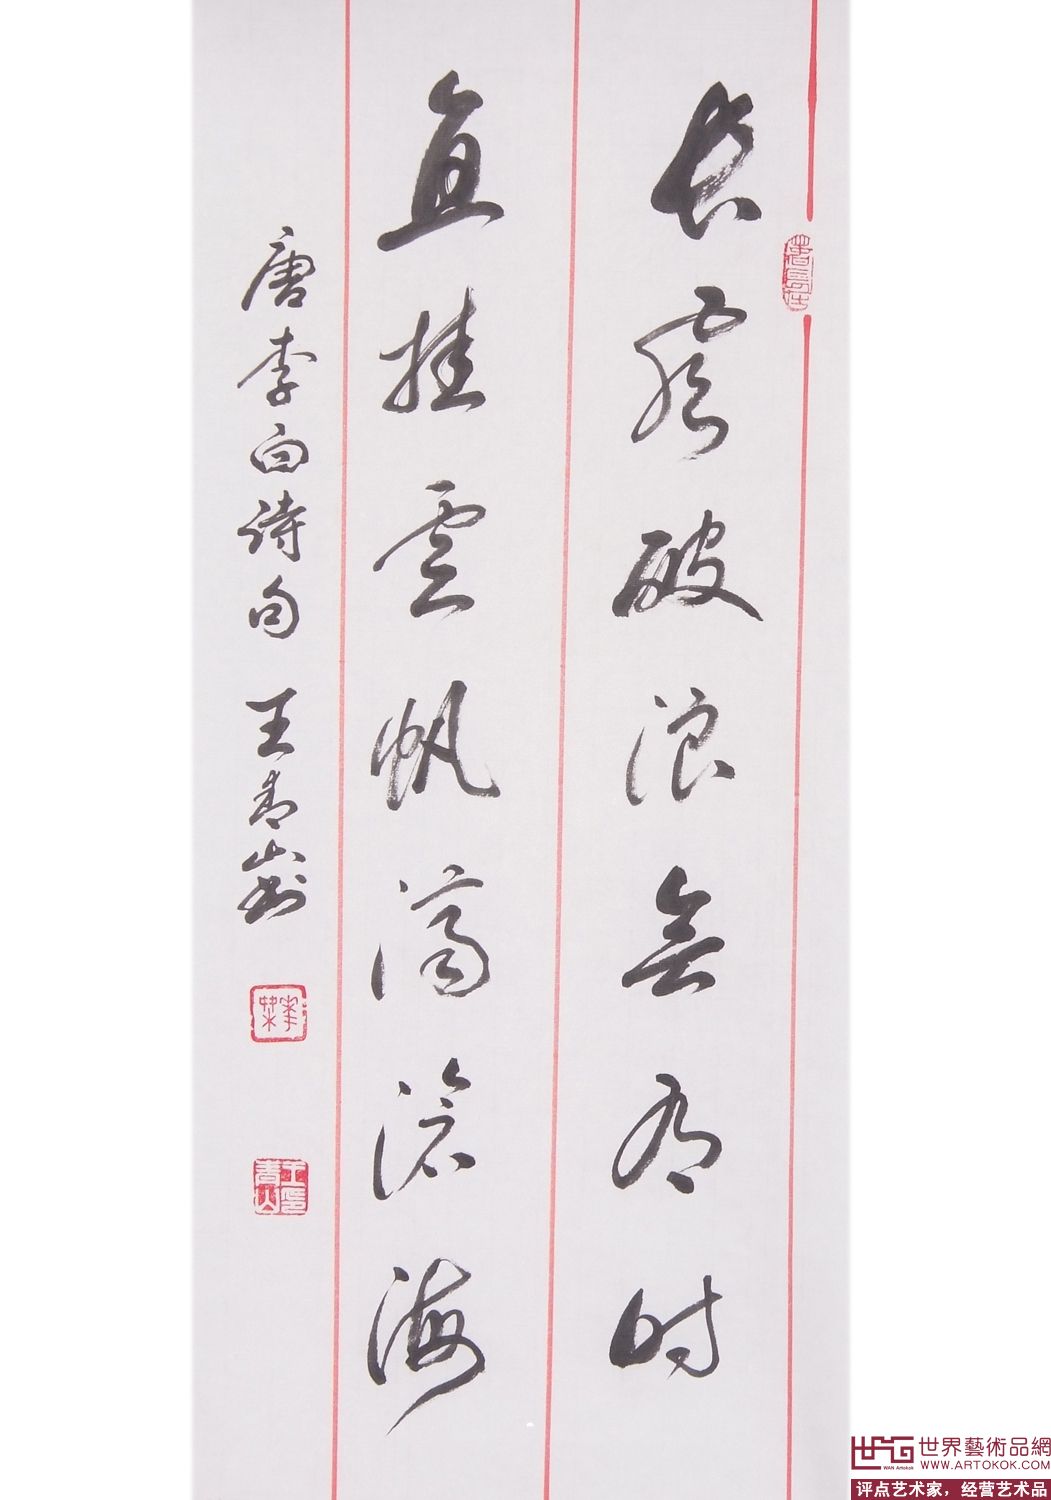 长风破浪会有时
直挂雲帆济沧海
唐李白诗句 王青山书
王青山印
世界藝術品網
WAN Artokok
WWW.ARTOKOK.COM
评点艺术家，经营艺术品